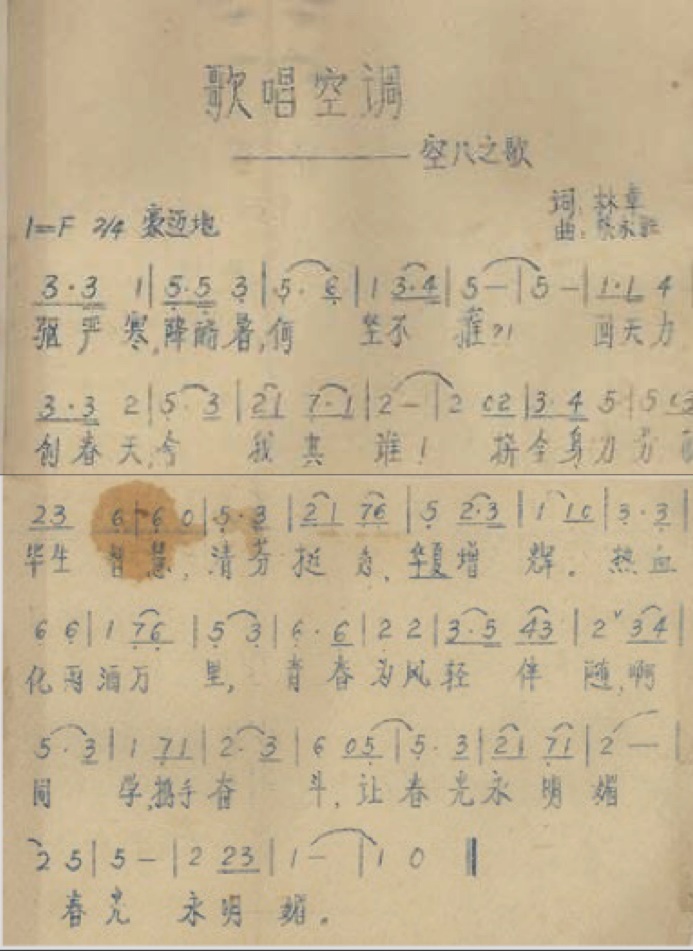 歌唱空调
——空八之歌
词:林章
1=F 2/4 豪迈地
曲: 永
3·3 1|5·5 3|5·6|1 3·4|5—|5—|1·1 4
驱严寒,降酷暑,何坚不摧?! 回天力
3·3 2|5·3|21 7·1|2—|2 02|3·4 5|5 03
创春天,舍我其谁! 拼全身力
23 6|6 0|5·3|21 76|5 2·3|1 10|3·3|
毕生智慧,清芬挺秀,华夏增辉。热血
6 6|1 76|5 3|6·6|2 2|3·5 43|2ˇ34|
化雨洒万里,青春为风轻伴随,啊
5·3|1 71|2·3|6 05|5·3|21 71|2—|
同学,携手奋斗,让春光永明媚
2 5|5—|2 23|1—|1 0‖
春光永明媚。